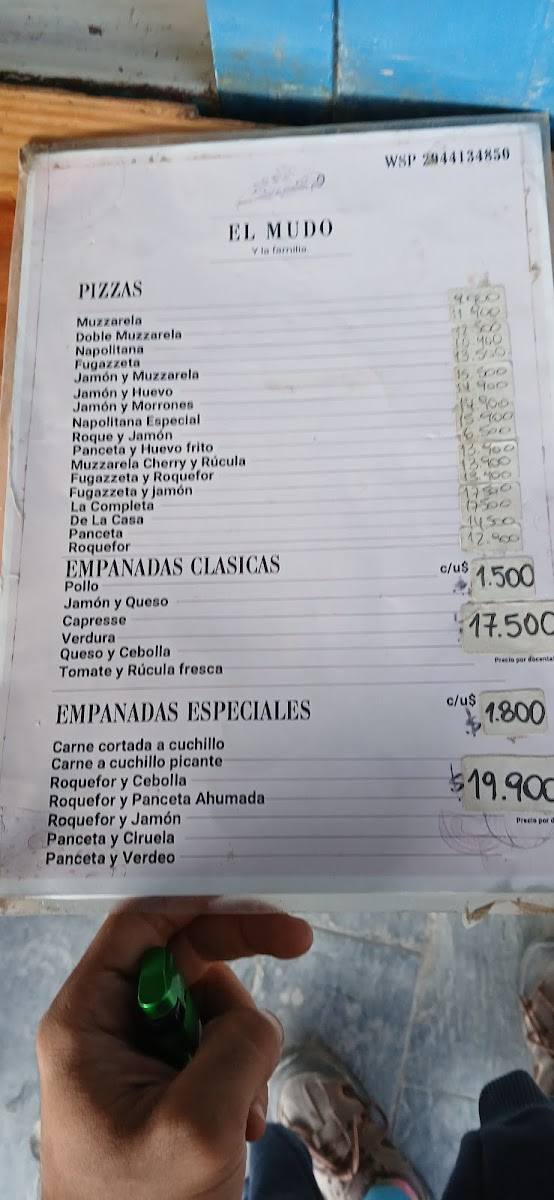 WSP 2944134850
EL MUDO
Y la familia
PIZZAS
Muzzarela
Doble Muzzarela
Napolitana
Fugazzeta
Jamón y Muzzarela
Jamón y Huevo
Jamón y Morrones
Napolitana Especial
Roque y Jamón
Panceta y Huevo frito
Muzzarela Cherry y Rúcula
Fugazzeta y Roquefor
Fugazzeta y jamón
La Completa
De La Casa
Panceta 14.500
Roquefor 12.900
EMPANADAS CLASICAS c/u$ 1.500
Pollo
Jamón y Queso
Capresse 17.500
Verdura
Queso y Cebolla
Precio por docena
Tomate y Rúcula fresca
EMPANADAS ESPECIALES c/u$ 1.800
Carne cortada a cuchillo
Carne a cuchillo picante
Roquefor y Cebolla $19.900
Roquefor y Panceta Ahumada
Roquefor y Jamón
Precio por d
Panceta y Ciruela
Panceta y Verdeo